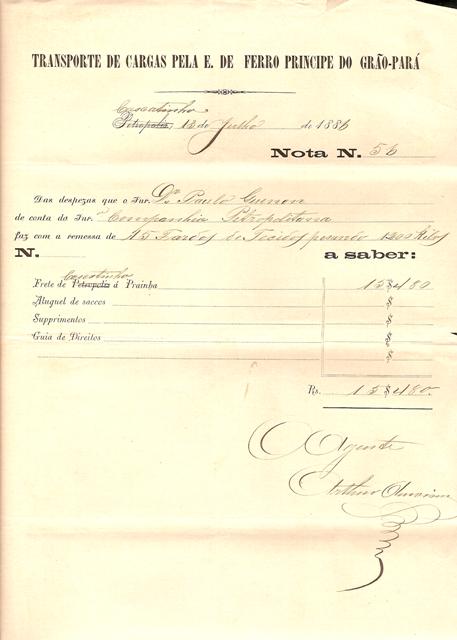 TRANSPORTE DE CARGAS PELA E. DE FERRO PRINCIPE DO GRÃO-PARÁ
Cascatinha
Petropolis, 13 de Julho de 1886
Nota N. 56
Das despezas que o Snr. Dr. Paulo
de conta do Snr. Companhia Petropolitana
faz com a remessa de 15 Fardos de Tecidos pesando 1200 Kilos
N. a saber:
Cascatinha
Frete de Petropolis á Prainha 15$480
Aluguel de saccos $
Supprimentos $
Guia de Direitos $
$
Rs. 15$480
O Agente
Arthur